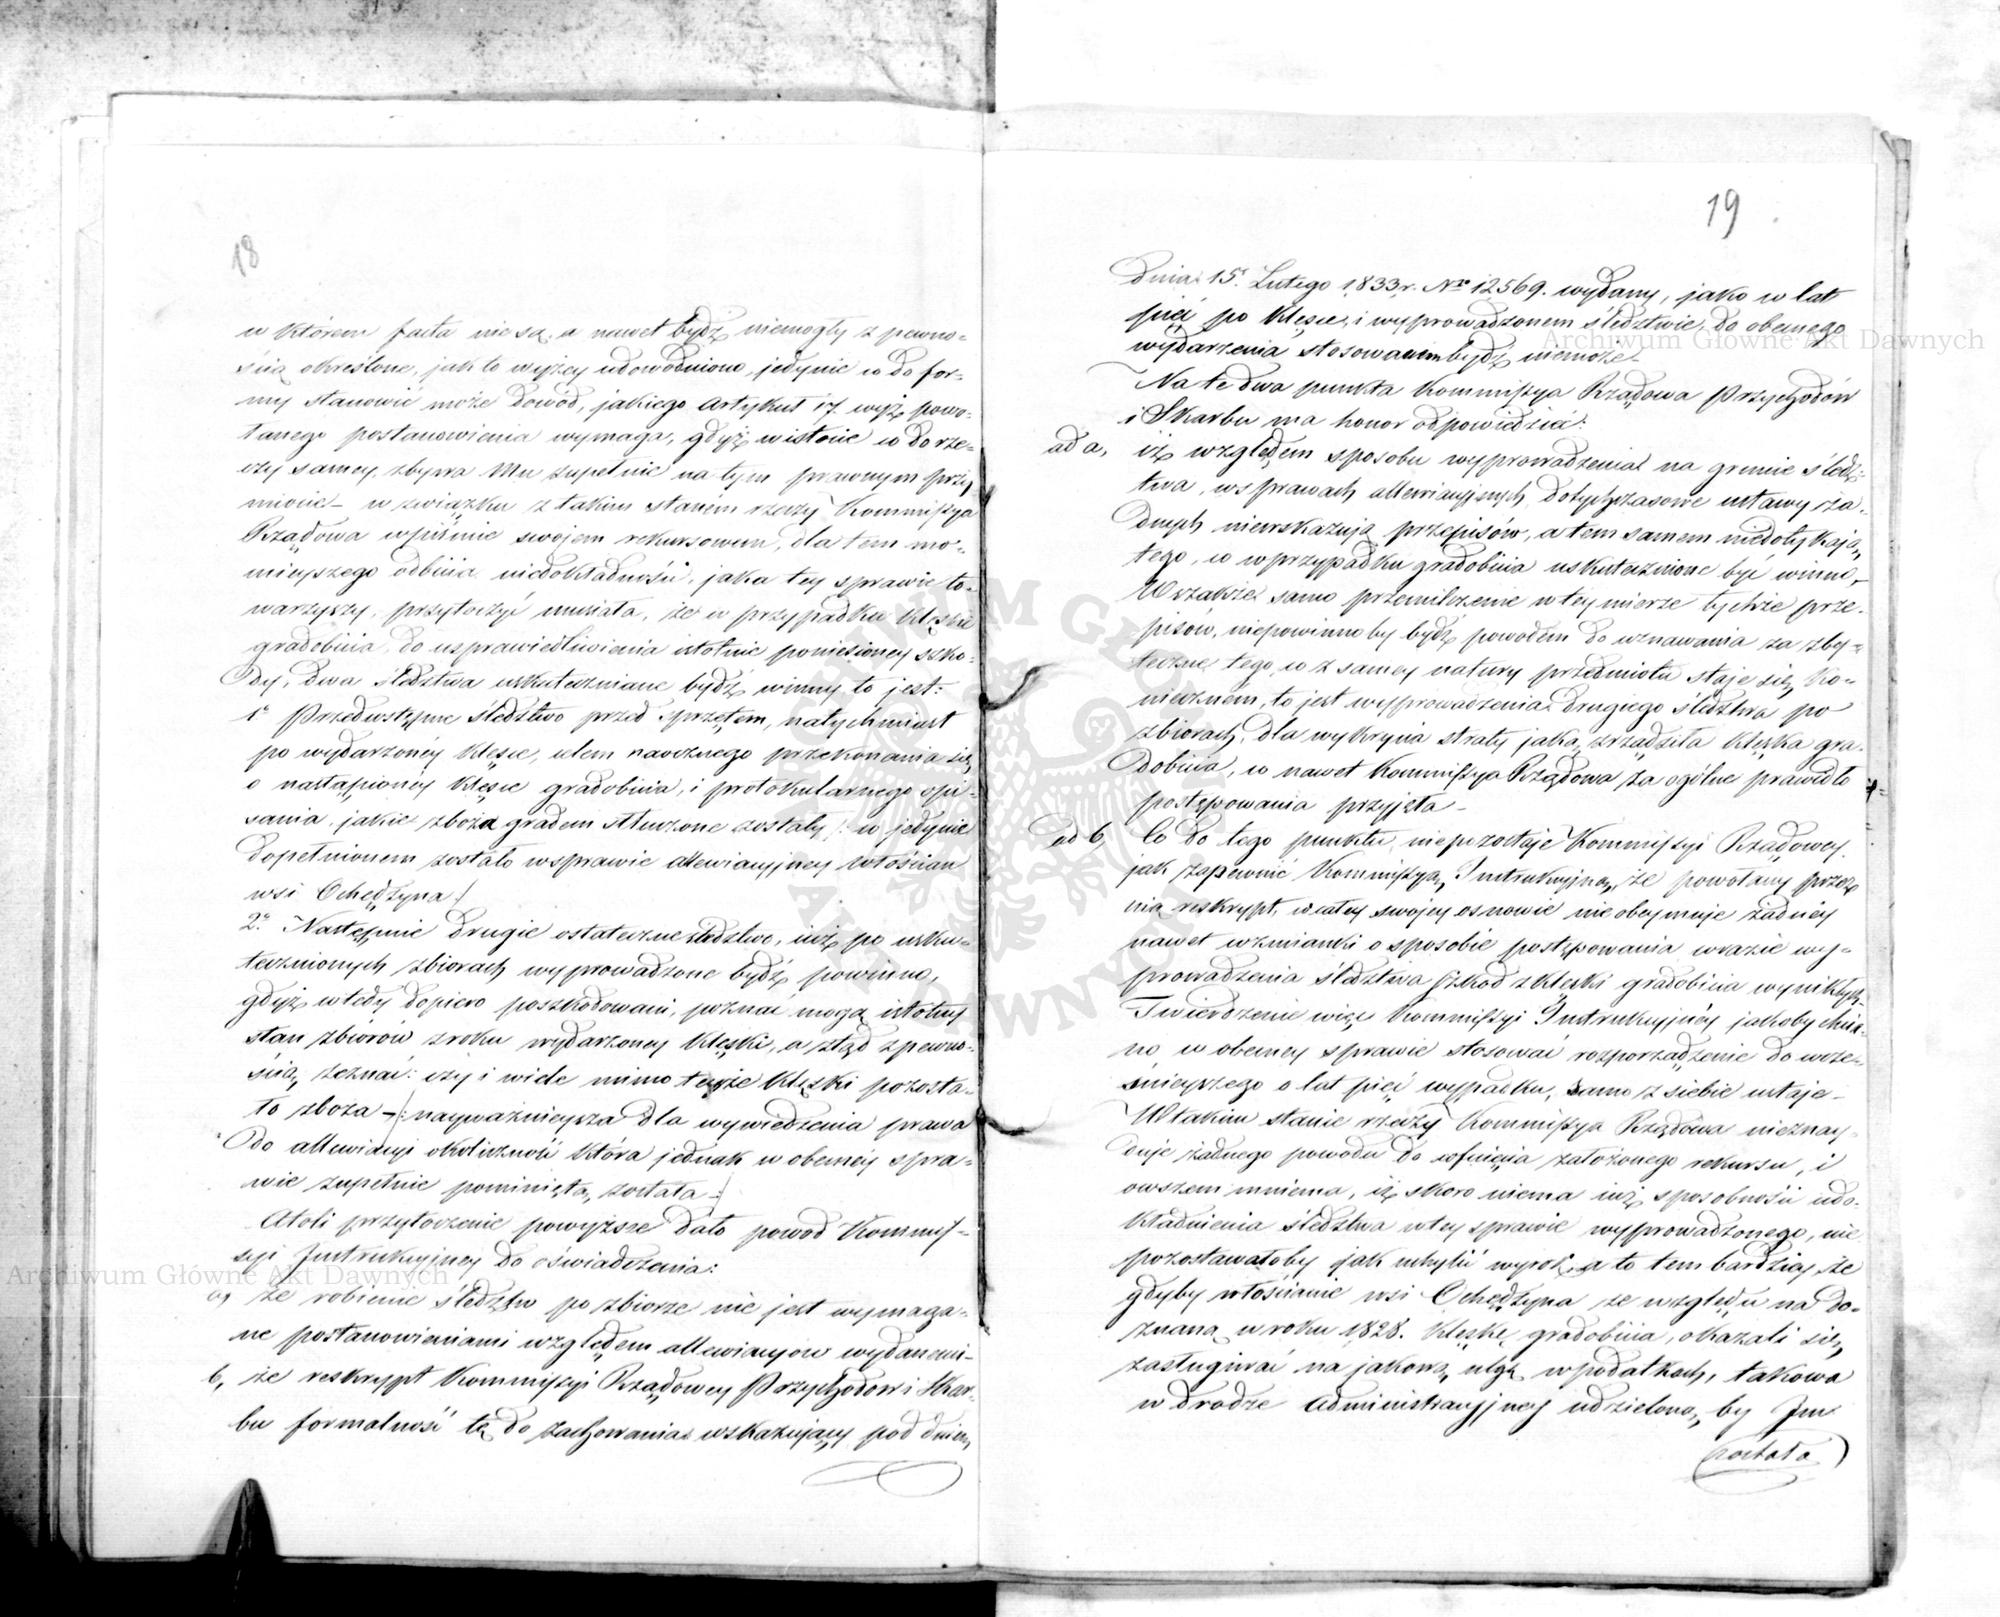 18
w którem facta nie są, a nawet bydź niemogły z pewno-
ścią określone, jak to wyżey udowodniono, jedynie co do for-
my stanowić może dowód, jakiego Artykuł 17. wyż powo-
łanego postanowienia wymaga, gdyż w istocie co do rze-
czy samey, zbywa Mu zupełnie na tym prawnym przy-
miocie – w związku z takim stanem rzeczy Kommissya
Rządowa w piśmie swojem rekursowem, dla tem mo-
cnieyszego odbicia niedokładności, jaka tey sprawie to-
warzyszy, przytoczyć musiała, że w przypadku klęski
gradobicia, do usprawiedliwienia istotnie poniesioney szko-
dy, dwa śledztwa uskuteczniane bydź winny, to jest:
1º Przedwstępne śledztwo przed sprzętem, natychmiast
po wydarzonéy klęsce, celem naocznego przekonania się
o nastąpionéy klęsce gradobicia, i protokularnego opi-
sania, jakie zboża gradem tłuczone zostały /: co jedynie
dopełnionem zostało w sprawie allewiacyjney włościan
wsi Ochędzyna :/
2º Następnie drugie ostateczne śledztwo, już po usku-
tecznionych zbiorach wyprowadzone bydź powinno,
gdyż wtedy dopiero poszkodowani, poznać mogą istotny
stan zbiorów z roku wydarzoney klęski, a ztąd z pewno-
ścią zeznać: czy i wiele mimo teyże klęski pozosta-
ło zboża – /: nayważnieysza dla wywiedzenia prawa
do allewiacyi okoliczność która jednak w obecnéy spra-
wie zupełnie pominiętą została :/
Atoli przytoczenie powyższe dało powód Kommis-
syi Instrukcyjney do oświadczenia:
a, że robienie śledztw po zbiorze nie jest wymaga-
ne postanowieniami względem allewiacyow wydanemi –
b, że reskrypt Kommissyi Rządowey Przychodów i Skar-
bu formalność tę do zachowania wskazujący pod dniem
19
Dnia 15. Lutego 1833 r. Nro 12569. wydany, jako w lat
pięć po klęsce, i wyprowadzonem śledztwie, do obecnego
wydarzenia stosowanem bydź niemoże –
Na te dwa punkta Kommissya Rządowa Przychodów
i Skarbu ma honor odpowiedzieć:
ad a, iż względem sposobu wyprowadzenia na gruncie śledz-
twa, w sprawach allewiacyjnych, dotychczasowe ustawy ża-
dnych niewskazują przepisów, a tem samem niedotykają
tego, co w przypadku gradobicia uskutecznione być winno –
Wszakże samo przemilczenie w tey mierze tychże prze-
pisów, niepowinno by bydź powodem do uznawania za zby-
teczne tego, co z samey natury przedmiotu staje się ko-
niecznem, to jest wyprowadzenia drugiego śledztwa po
zbiorach, dla wykrycia straty jaką zrządziła klęska gra-
dobicia, co nawet Kommissya Rządowa za ogólne prawidło
postępowania przyjęła –
ad b, Co do tego punktu, niepozostaje Kommissyi Rządowey
jak zapewnić Kommissyą Instrukcyjną, że powołany przez
nią reskrypt, w całey swojey osnowie nie obeymuje żadnéy
nawet wzmianki o sposobie postępowania w razie wy-
prowadzenia śledztwa szkód z klęski gradobicia wynikłych –
Twierdzenie więc Kommissyi Instrukcyjnéy jakoby chcia-
no w obecney sprawie stosować rozporządzenie do wcze-
śnieyszego o lat pięć wypadku, samo z siebie ustaje –
W takim stanie rzeczy Kommissya Rządowa nieznay-
duje żadnego powodu do cofnięcia założonego rekursu, i
owszem mniema, iż skoro niema już sposobności udo-
kładnienia śledztwa w tey sprawie wyprowadzonego, nie
pozostawałoby jak uchylić wyrok, a to tem bardziey, że
gdyby włościanie wsi Ochędzyna ze względu na do-
znaną w roku 1828. klęskę gradobicia, okazali się
zasługiwać na jakową ulgę w podatkach, takowa
w drodze administracyjney udzieloną by Im
została
Archiwum Główne Akt Dawnych
Archiwum Główne Akt Dawnych
ARCHIWUM GŁÓWNE AKT DAWNYCH